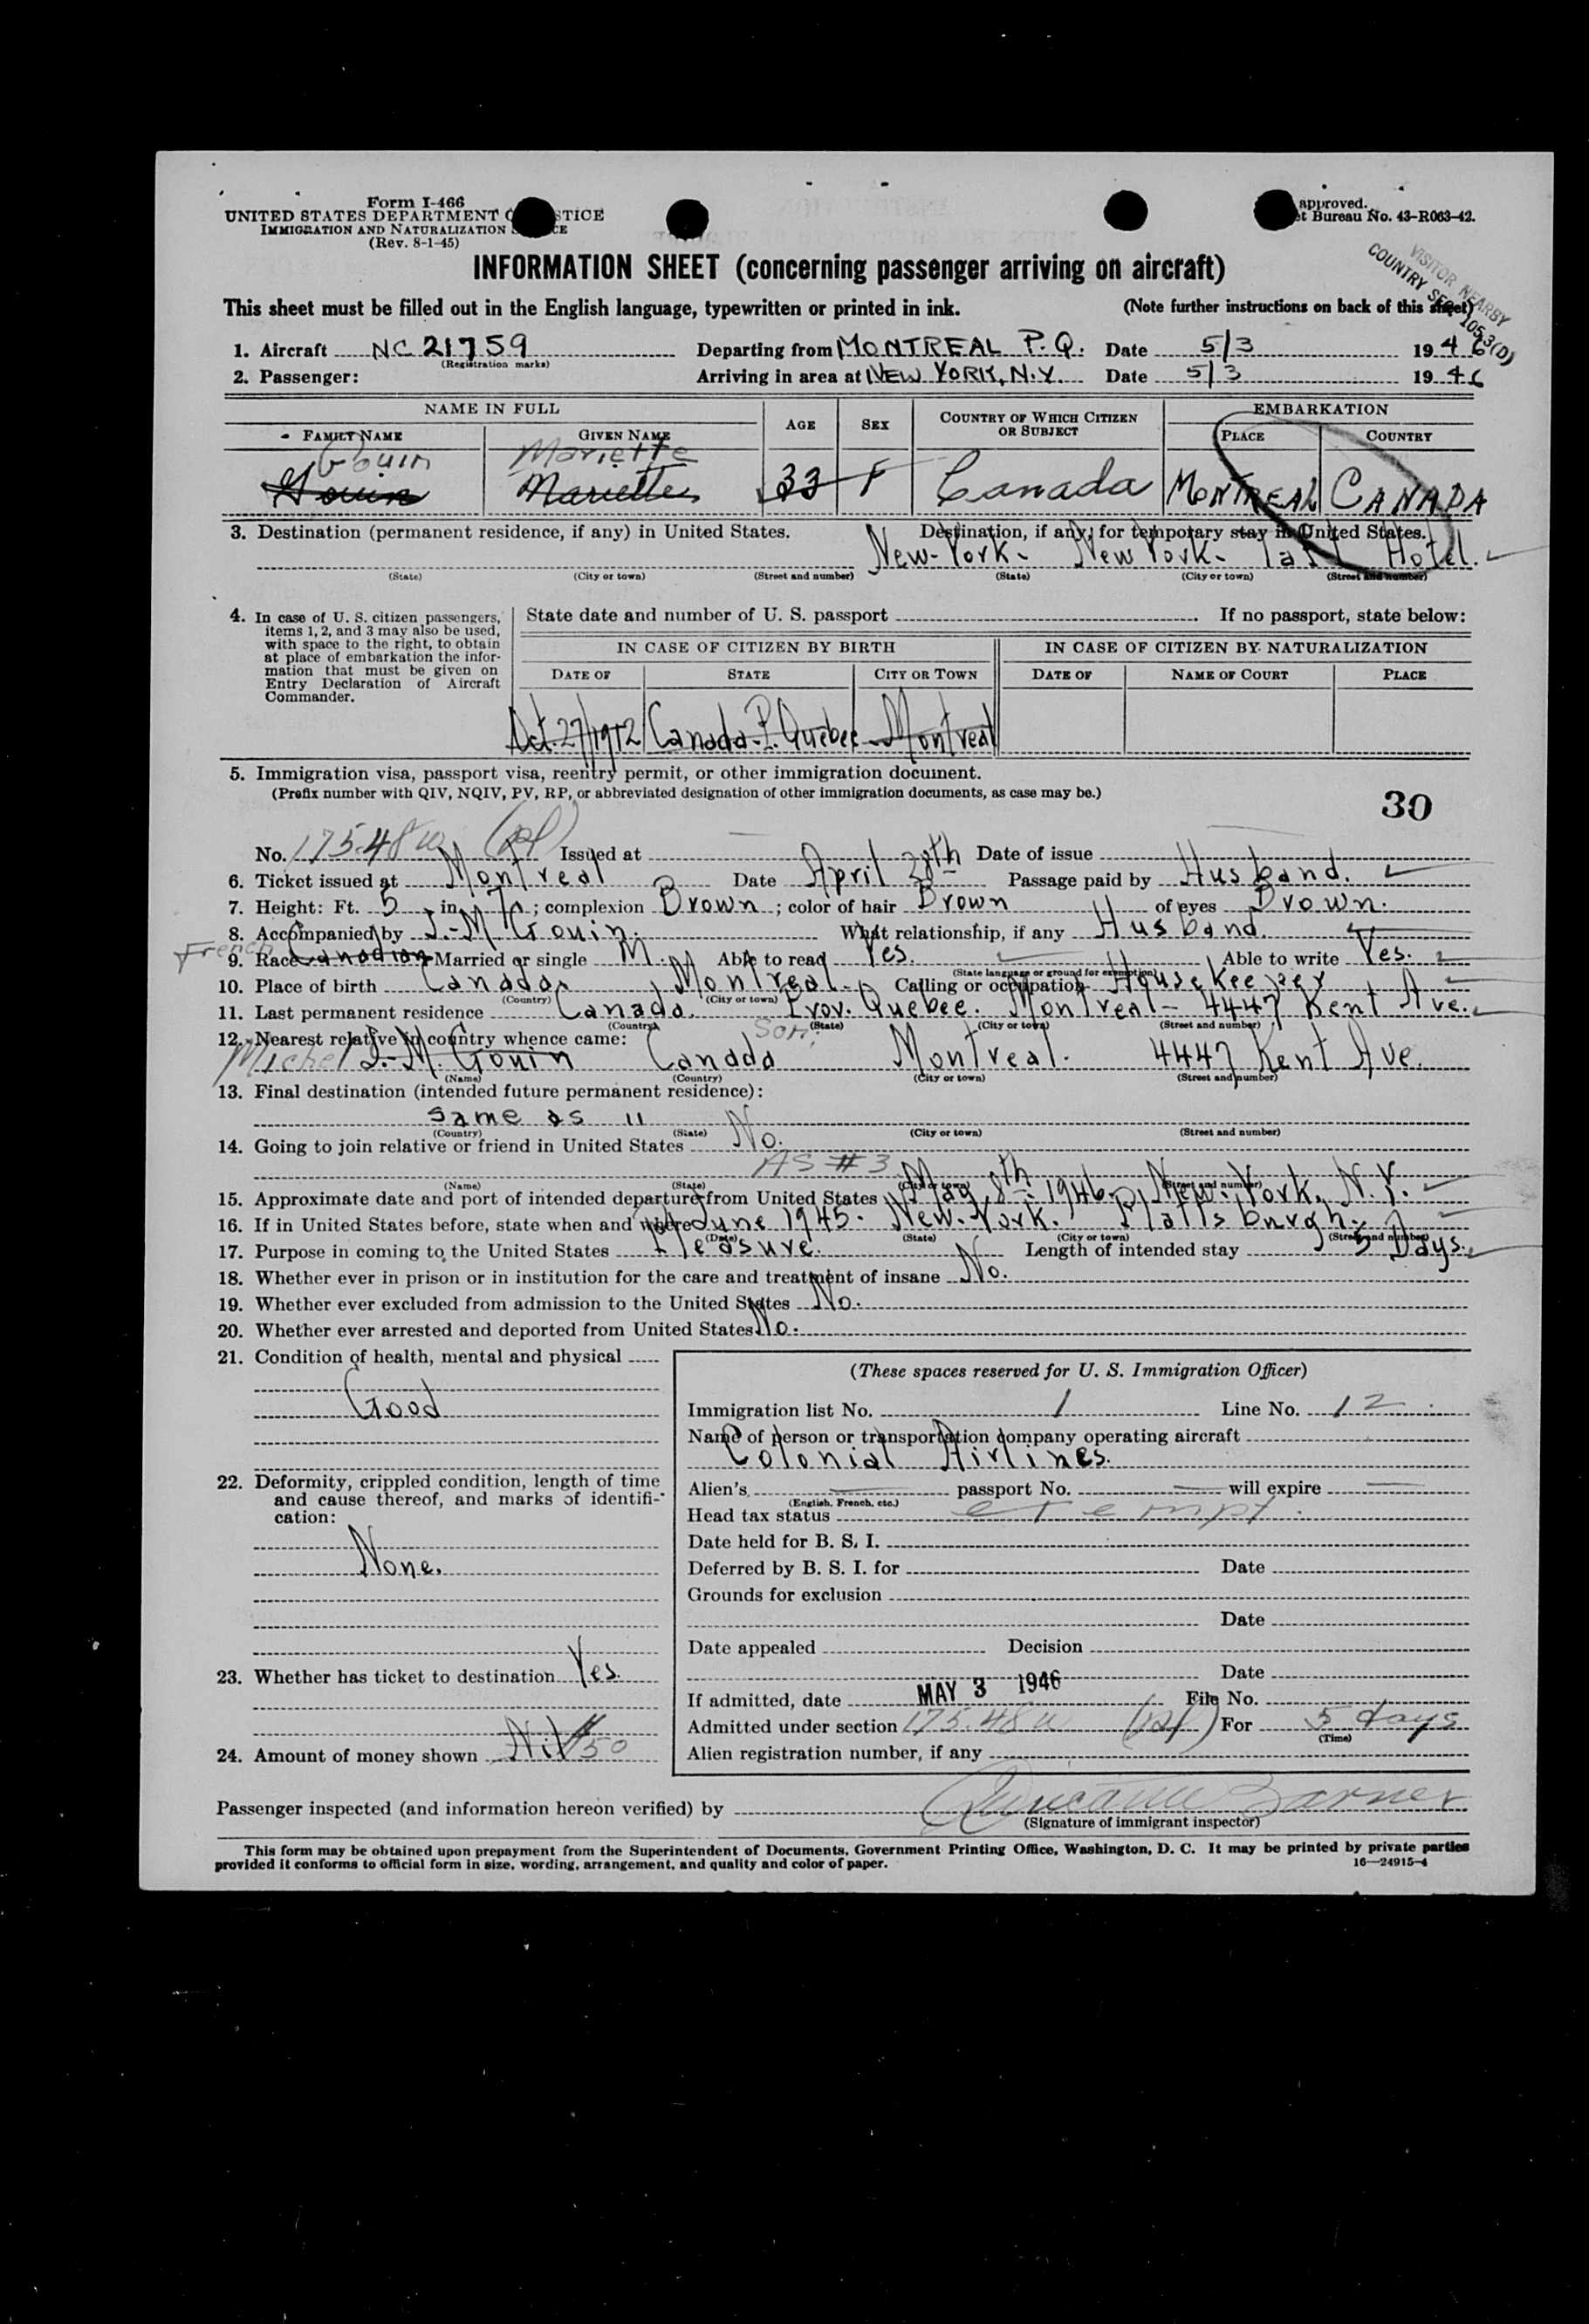 Form I-466
UNITED STATES DEPARTMENT STICE
IMMIGRATION AND NATURALIZATION CE
(Rev. 8-1-45)
approved.
t Bureau No. 43-R063-42.
VISITOR NEARBY
COUNTRY SEC. 105.3(D)
INFORMATION SHEET (concerning passenger arriving on aircraft)
This sheet must be filled out in the English language, typewritten or printed in ink. (Note further instructions on back of this sheet)
1. Aircraft NC 21759 Departing from MONTREAL P.Q. Date 5/3 1946
(Registration marks)
2. Passenger: Arriving in area at NEW YORK, N.Y. Date 5/3 1946
NAME IN FULL AGE SEX COUNTRY OF WHICH CITIZEN OR SUBJECT EMBARKATION
FAMILY NAME GIVEN NAME PLACE COUNTRY
Gouin Mariette
Gouin Mariette 33 F Canada MONTREAL CANADA
3. Destination (permanent residence, if any) in United States. Destination, if any, for temporary stay in United States.
New-York- New York- Taft Hotel.
(State) (City or town) (Street and number) (State) (City or town) (Street and number)
4. In case of U. S. citizen passengers, items 1, 2, and 3 may also be used, with space to the right, to obtain at place of embarkation the information that must be given on Entry Declaration of Aircraft Commander.
State date and number of U. S. passport If no passport, state below:
IN CASE OF CITIZEN BY BIRTH IN CASE OF CITIZEN BY NATURALIZATION
DATE OF STATE CITY OR TOWN DATE OF NAME OF COURT PLACE
Oct. 27/1912 Canada-P. Quebec - Montreal
5. Immigration visa, passport visa, reentry permit, or other immigration document.
(Prefix number with QIV, NQIV, PV, RP, or abbreviated designation of other immigration documents, as case may be.)
30
No. 175.48 Issued at Date of issue
6. Ticket issued at Montreal Date April 28th Passage paid by Husband.
7. Height: Ft. 5 in. 7 ; complexion Brown ; color of hair Brown of eyes Brown.
8. Accompanied by J.-M. Gouin. What relationship, if any Husband.
French
9. Race Canadian Married or single M. Able to read Yes. Able to write Yes.
(State language or ground for exemption)
10. Place of birth Canada. Montreal. Calling or occupation Housekeeper
(Country) (City or town)
11. Last permanent residence Canada. Prov. Quebec. Montreal - 4447 Kent Ave.
(Country) (State) (City or town) (Street and number)
12. Nearest relative in country whence came: Son,
Michel J.-M. Gouin Canada Montreal. 4447 Kent Ave.
(Name) (Country) (City or town) (Street and number)
13. Final destination (intended future permanent residence):
Same as 11
(Country) (State) (City or town) (Street and number)
14. Going to join relative or friend in United States No.
AS # 3
(Name) (State) (City or town) (Street and number)
15. Approximate date and port of intended departure from United States May 8th 1946. New-York, N.Y.
16. If in United States before, state when and where June 1945. New-York. Plattsburgh.
(Date) (State) (City or town) (Street and number)
17. Purpose in coming to the United States Pleasure. Length of intended stay 5 Days.
18. Whether ever in prison or in institution for the care and treatment of insane No.
19. Whether ever excluded from admission to the United States No.
20. Whether ever arrested and deported from United States No.
21. Condition of health, mental and physical
Good
22. Deformity, crippled condition, length of time and cause thereof, and marks of identification:
None.
23. Whether has ticket to destination Yes.
24. Amount of money shown Nil $50
(These spaces reserved for U. S. Immigration Officer)
Immigration list No. 1 Line No. 12
Name of person or transportation company operating aircraft
Colonial Airlines.
Alien's passport No. will expire
(English, French, etc.)
Head tax status exempt
Date held for B. S. I.
Deferred by B. S. I. for Date
Grounds for exclusion
Date
Date appealed Decision
Date
If admitted, date MAY 3 1946 File No.
Admitted under section 175.48 For 5 days
(Time)
Alien registration number, if any
Passenger inspected (and information hereon verified) by
(Signature of immigrant inspector)
This form may be obtained upon prepayment from the Superintendent of Documents, Government Printing Office, Washington, D. C. It may be printed by private parties
provided it conforms to official form in size, wording, arrangement, and quality and color of paper. 16—24915-4